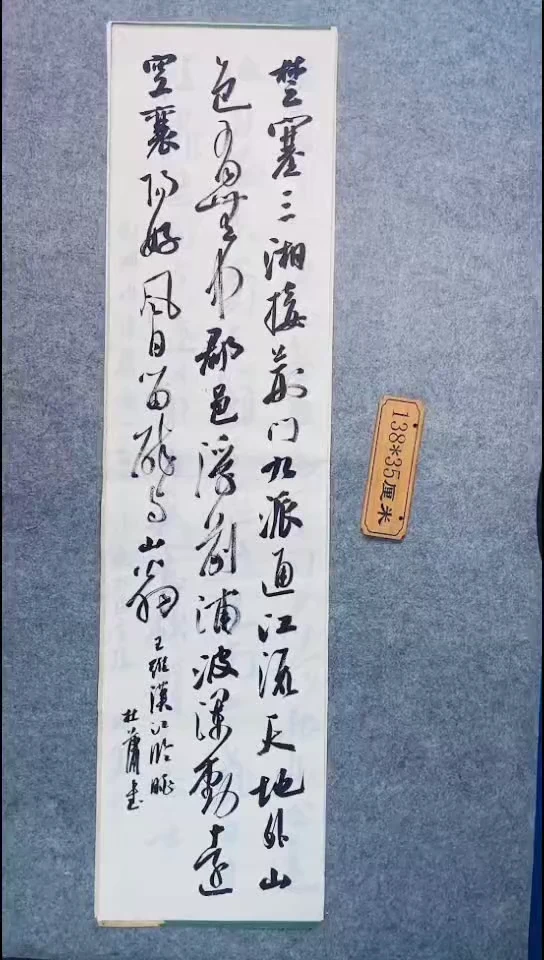 楚塞三湘接荆门九派通江流天地外山
色有無中郡邑浮前浦波澜動遠
空襄阳好风日留醉与山翁
王维漢江临眺
杜萧书
138*35厘米